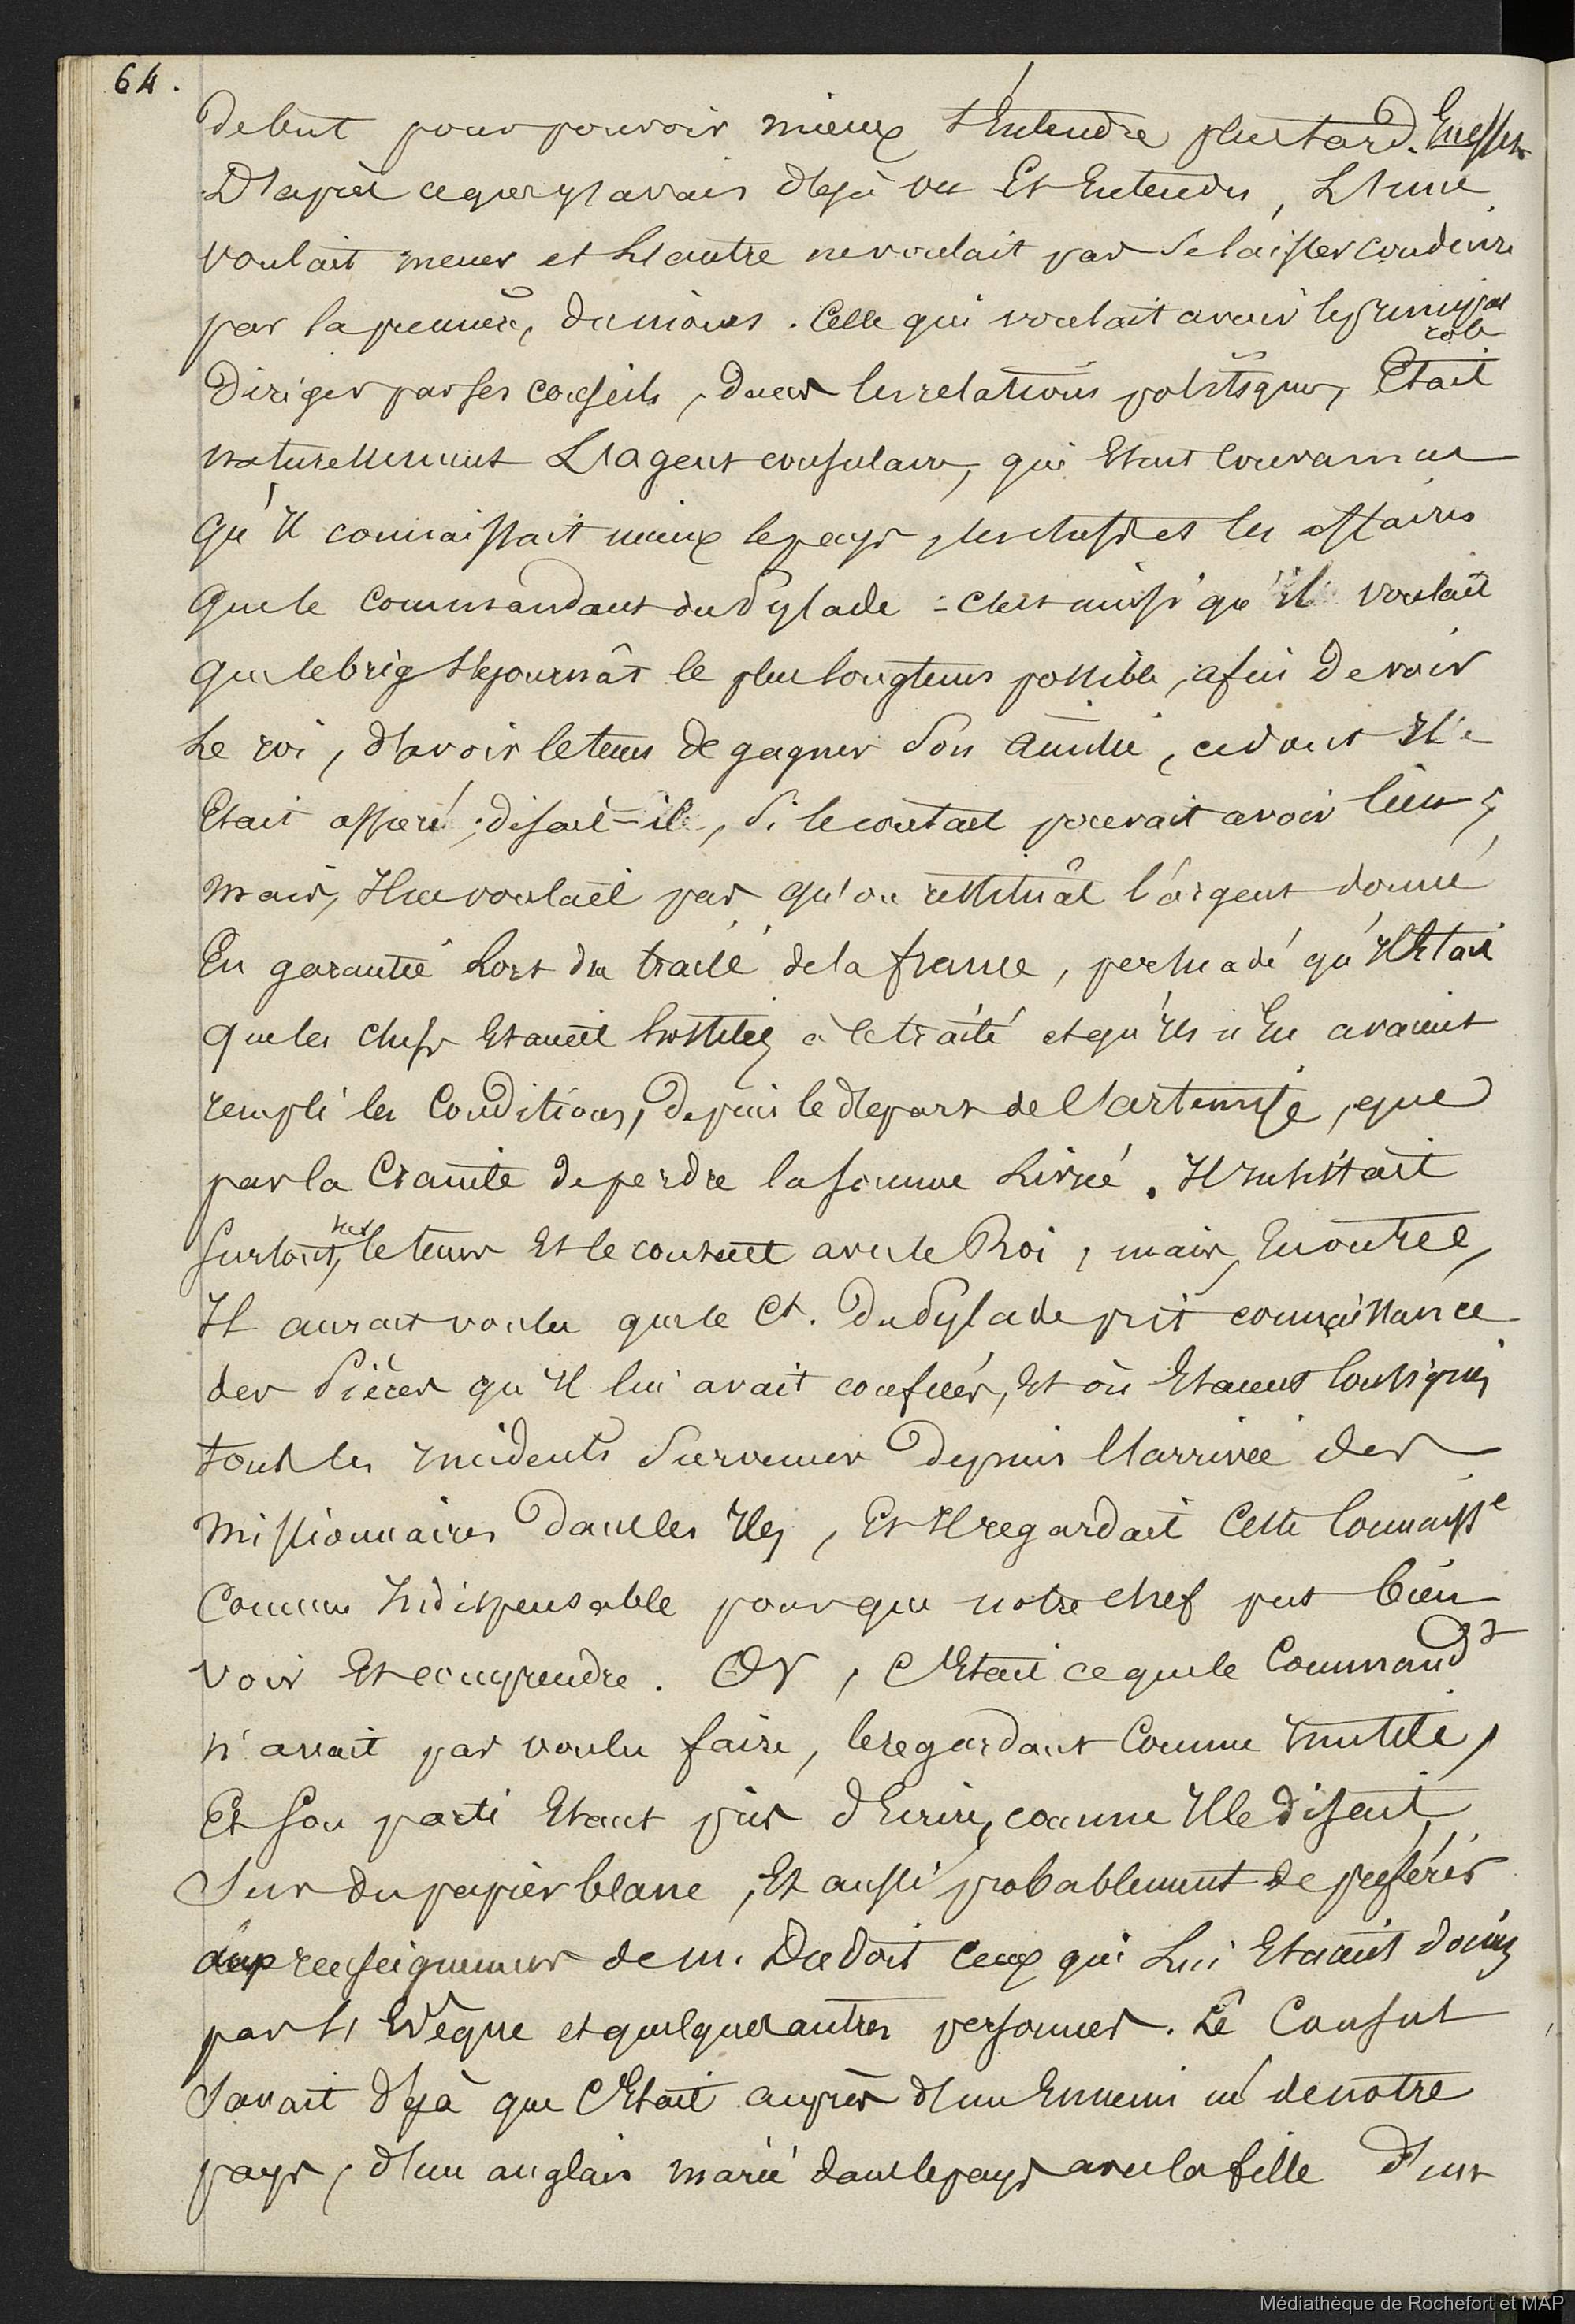 64.
debut pour pouvoir mieux s'Entendre plus tard. En effet
D'après ce que j'avais dejà vu Et Entendu, L'une
voulait mener et L'autre ne voulait pas Se laisser conduire
par la premiere, du moins. Celle qui voulait avoir le principal
role
Diriger par ses conseils, dans les relations politiques, Etait
naturellement L'agent consulaire, qui Etait convaincu
qu'Il connaissait mieux le pays, les chefs et les affaires
que le commandant du Pylade = C'est ainsi qu'il voulait
que le brig sejournât le plus longtems possible, afin de voir
Le roi, d'avoir le tems de gagner Son amitié, ce dont Il
Etait assuré, disait-il, Si le contact pouvait avoir lieu;
mais, Il ne voulait pas qu'on restituât l'argent donné
En garantie Lors du traité de la france, persuadé qu'Il Etait
que les chefs Etaient hostiles à le traité et qu'Ils n'En avaient
rempli les Conditions, depuis le depart de l'artemise, que
par la Crainte de perdre la somme Livrée. Il Insistait
surtout, sur le tems Et le contact avec le Roi, mais, En outre,
Il aurait voulu que le Ct. Du Pylade prit connaissance
des Pièces qu'Il lui avait confiées, Et où Etaient Consignés
tous les Incidents Survenus depuis l'arrivée des
missionnaires Dans les Iles, Et Il regardait Cette Connaisse
Comme Indispensable pour que notre chef put bien
voir Et comprendre. Or, C'Etait ce que le Commandt
n'avait pas voulu faire, le regardant Comme Inutile,
Et son parti Etant pris d'Ecrire, comme Il le disait,
Sur du papier blanc, Et aussi probablement de préférer
aux renseignemens de m. Dudoit Ceux qui Lui Etaient donnés
par L'Evêque et quelques autres personnes. Le Consul
Savait déjà que C'Etait auprès d'un Ennemi né de notre
pays, d'un anglais marié dans le pays avec la fille d'un
Médiathèque de Rochefort et MAP